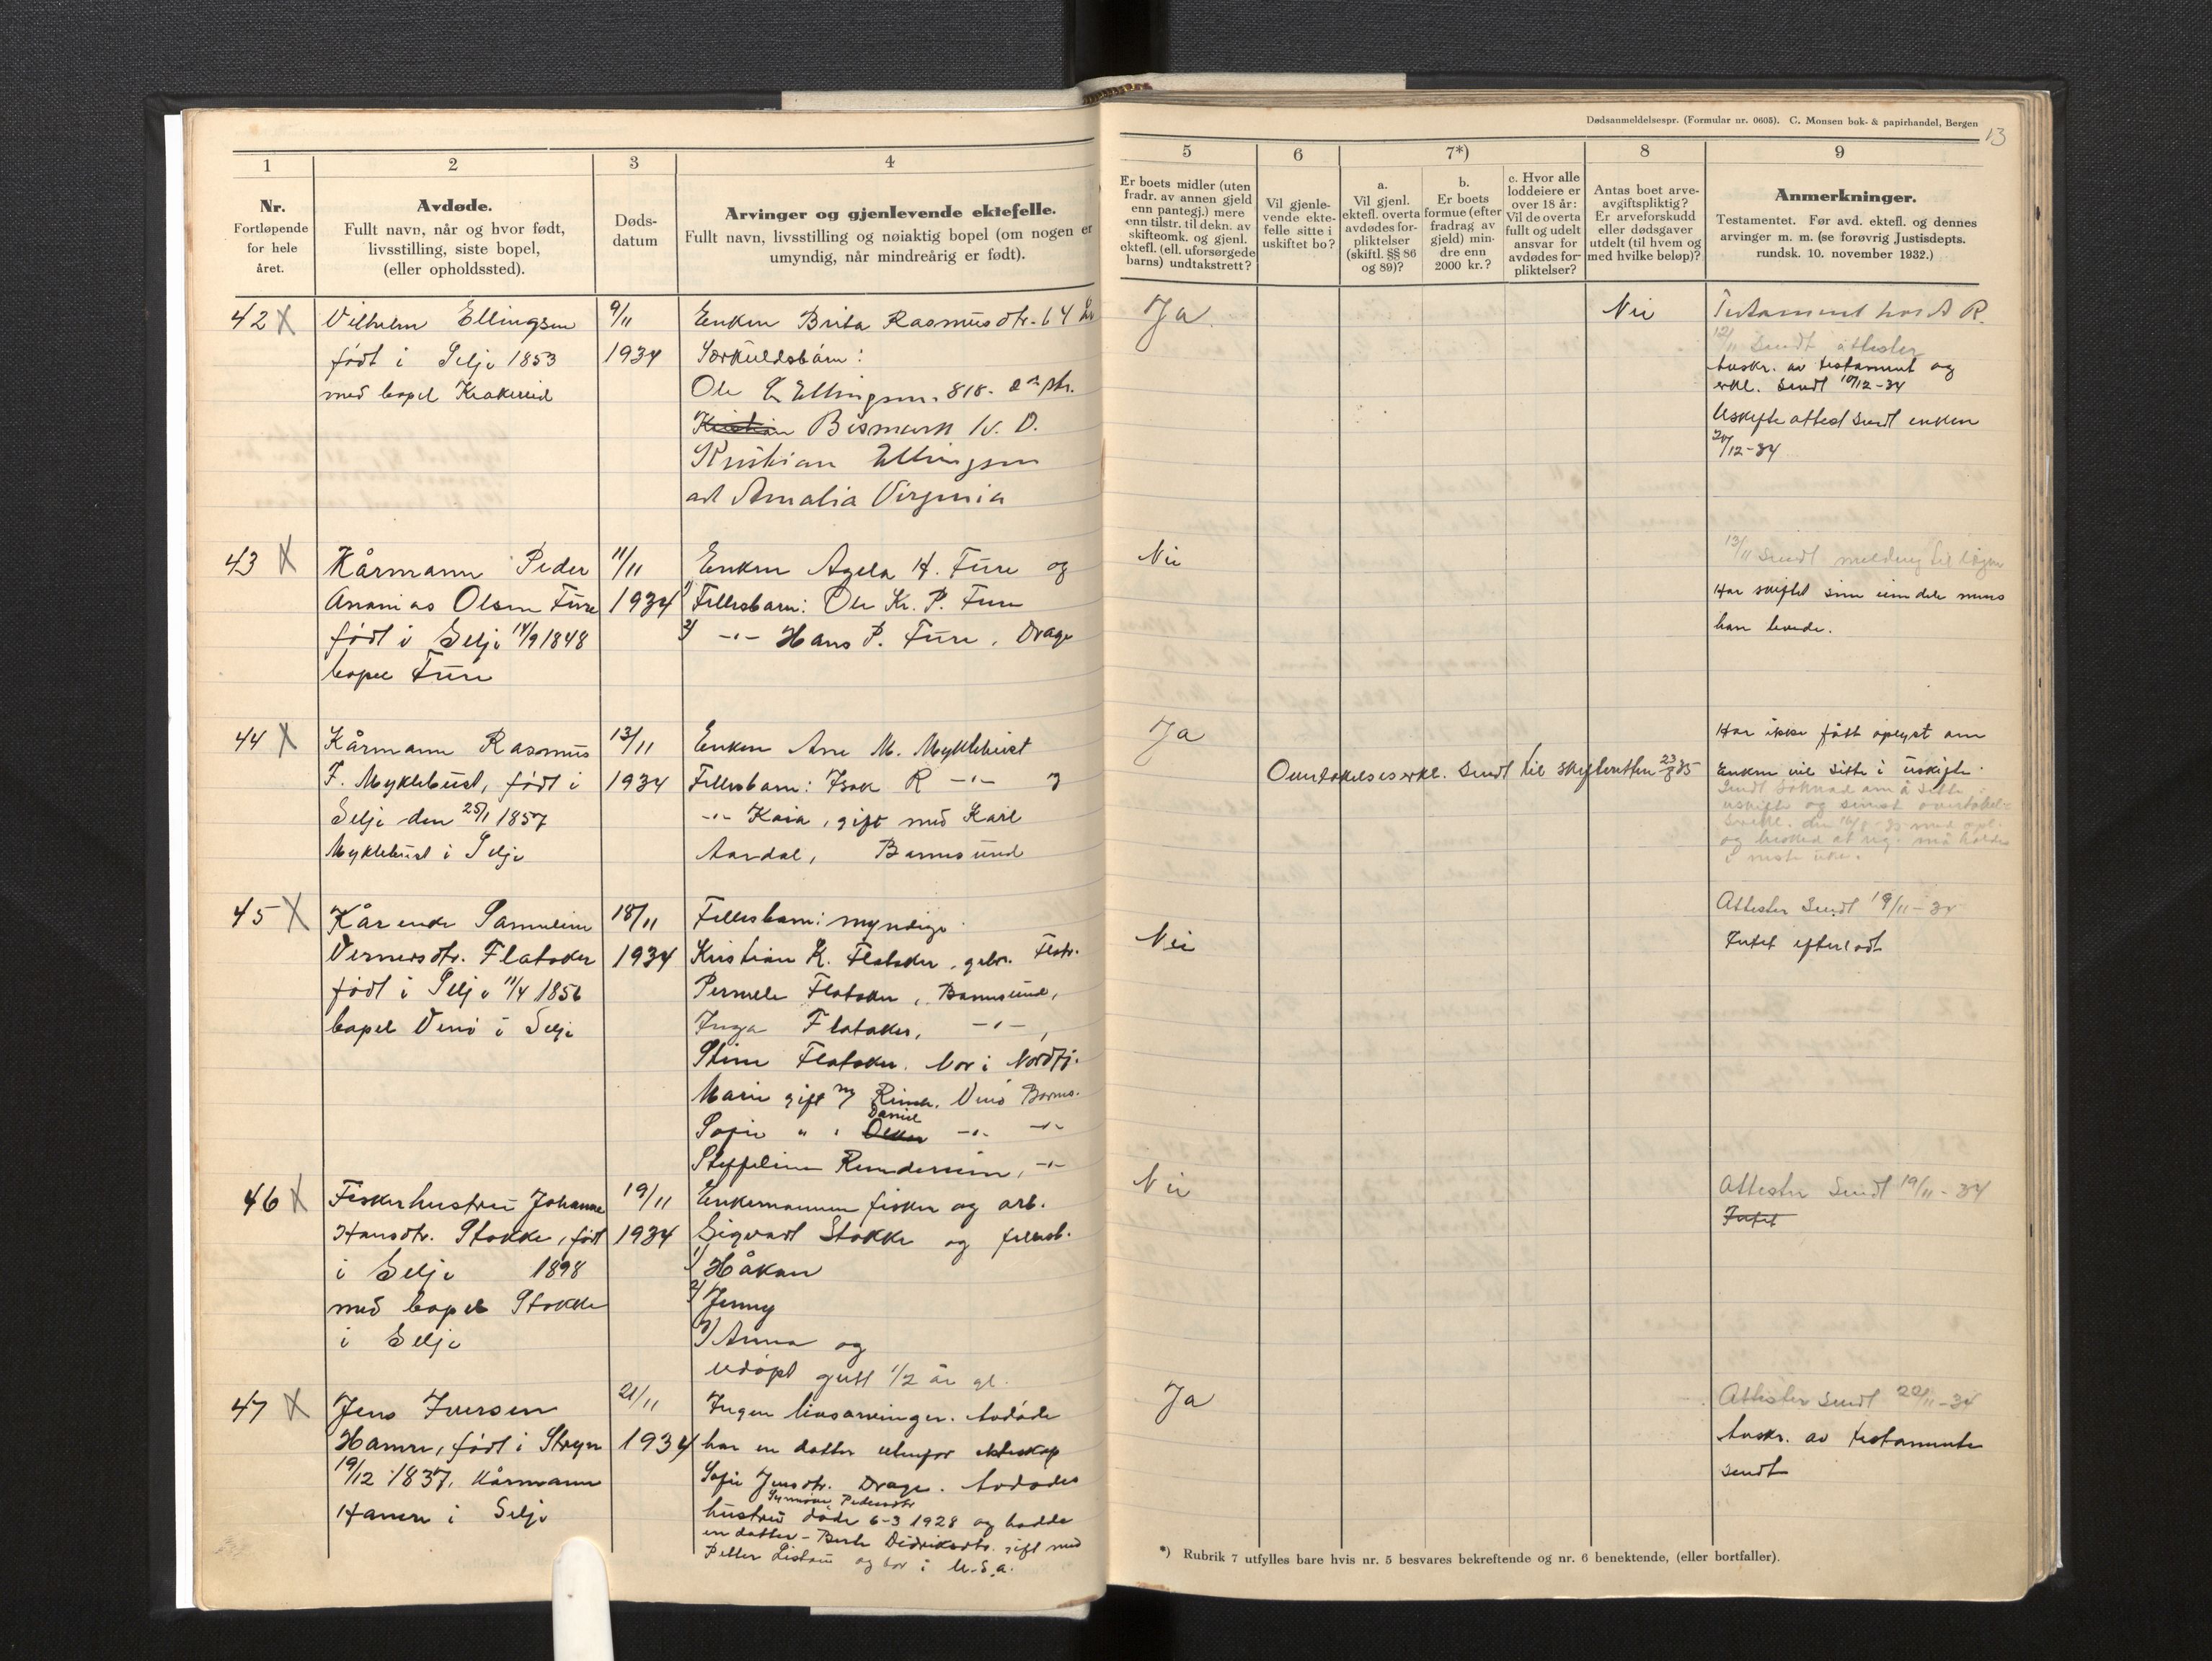 1
2
3
4
Nr.
Fortløpende
for hele
året.
Avdøde.
Fullt navn, når og hvor født,
livsstilling, siste bopel,
(eller opholdssted).
Døds-
datum
Arvinger og gjenlevende ektefelle.
Fullt navn, livsstilling og nøiaktig bopel (om nogen er
umyndig, når mindreårig er født).
42 X
Vilhelm Ellingsen
født i Selje 1853
med bopel
9/11
1934
Enken Brita Rasmusdtr. 64
Særkuldsbarn:
Ole E Ellingsen. 818.
Kristian Bismark
Kristian Ellingsen
Amalia Virginia
43 X
Kårmann Peder
Ananias Olsen Fure
født i Selje 14/9 1848
bopel Fure
11/11
1934
Enken Agela H. Fure og
1) Fellesbarn: Ole Kr. P. Fure
2) -"- Hans P. Fure, Drage
44 X
Kårmann Rasmus
F. Myklebust, født i
Selje den 25/1 1857
Myklebust i Selje
13/11
1934
Enken Ane M. Myklebust
Fellesbarn: Isak R -"-
-"- Kaia, gift med Karl
Aardal, Barmsund
45 X
Kårenke Samueline
Vernersdtr. Flataker
født i Selje 11/4 1856
bopel Venø i Selje
18/11
1934
Fellesbarn: myndige
Kristian K. Flataker, gbr. Flatr.
Pernele Flataker, Barmsund,
Inga Flataker, -"-,
Stine Flataker. Nor i Nordfj.
Marie gift m/ Venø Barms.
Daniel
Sofie " " -"- -"-
Steffeline -"-
46 X
Fiskerhustru Johanne
Hansdtr. Stokke, født
i Selje 1898
med bopel Stokke
i Selje
19/11
1934
Enkemannen fisker og arb.
Sigvart Stokke og fellesb.
1) Håkon
2) Jenny
3) Anna og
udøpt gutt 1/2 år gl.
47 X
Jens Iversen
Hamre, født i Stryn
19/12 1837. Kårmann
Hamre i Selje
21/11
1934
Ingen livsarvinger. Avdøde
har en datter utenfor ekteskap
Sofie Jensdtr. Drage. Avdødes
Synnøve Pedersdtr
hustru døde 6-3 1928 og hadde
en datter - Berte Didriksdtr. gift med
Petter og bor i U.S.a.
Dødsanmeldelsespr. (Formular nr. 0605). C. Monsen bok- & papirhandel, Bergen
13
5
6
7*)
8
9
Er boets midler (uten
fradr. av annen gjeld
enn pantegj.) mere
enn tilstr. til dekn. av
skifteomk. og gjenl.
ektefl. (ell. uforsørgede
barns) undtakstrett?
Vil gjenle-
vende ekte-
felle sitte i
uskiftet bo?
a.
Vil gjenl.
ektefl. overta
avdødes for-
pliktelser
(skiftl. §§ 86
og 89)?
b.
Er boets
formue (efter
fradrag av
gjeld) min-
dre enn
2000 kr.?
c. Hvor alle
loddeiere er
over 18 år:
Vil de overta
fullt og udelt
ansvar for
avdødes for-
pliktelser?
Antas boet arve-
avgiftspliktig?
Er arveforskudd
eller dødsgaver
utdelt (til hvem og
med hvilke beløp)?
Anmerkninger.
Testamentet. Før avd. ektefl. og dennes
arvinger m. m. (se forøvrig Justisdepts.
rundsk. 10. november 1932.)
Ja
Nei
Testament hos A R.
12/11 Sendt attester
Avskr. av testament og
erkl. Sendt 10/12-34
Uskifte attest sendt enken
20/12-34
Nei
13/11 Sendt melding til
Har skiftet sine eiendele mens
han levde.
Ja
Overtakelseserkl. Sendt til skifteretten 23/8 35
Har ikke fått oplyst om
Enken vil sitte i uskifte.
Sendt søknad om å sitte i
uskifte og
og beskjed at må holdes
i neste uke.
Nei
Attester Sendt 19/11-34
Intet efterlatt
Nei
Attester Sendt 19/11-34
Intet
Ja
Attester Sendt 22/11-34
Avskr. av testamente
sendt
*) Rubrik 7 utfylles bare hvis nr. 5 besvares bekreftende og nr. 6 benektende, (eller bortfaller).